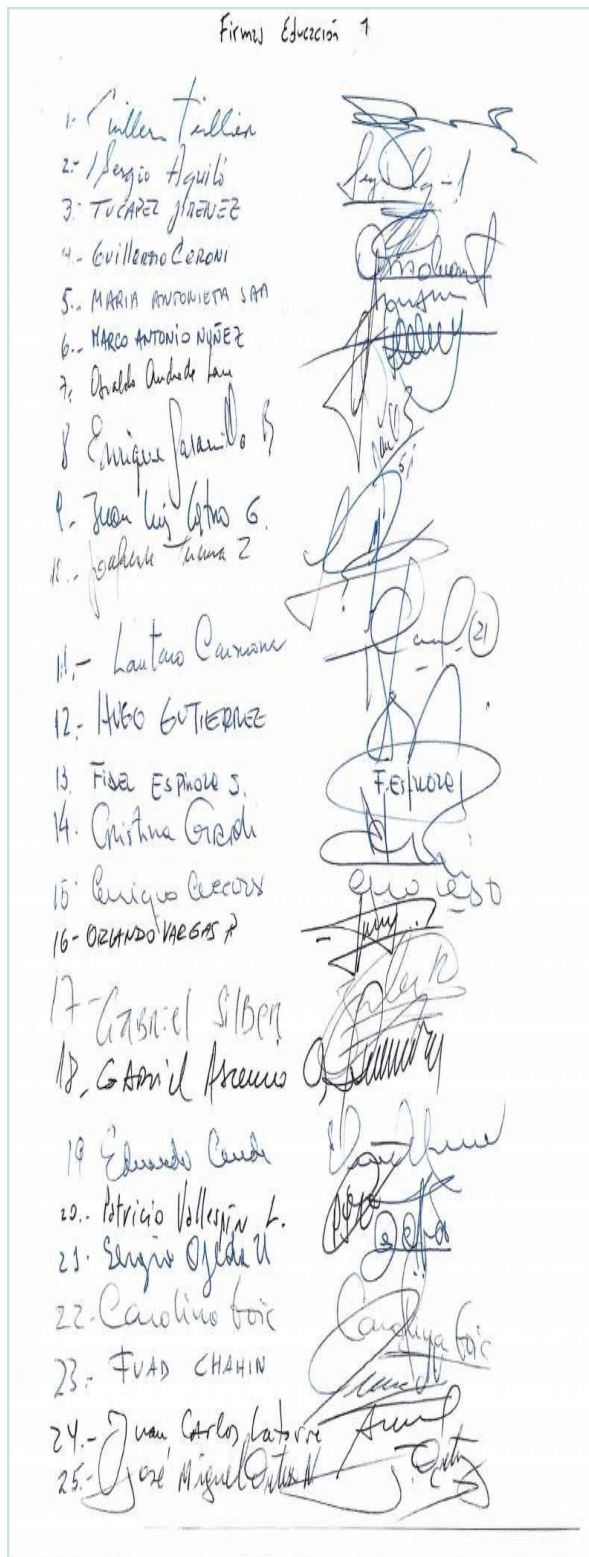 Firmas Educación 1
1.- Guillermo Teillier
2.- Sergio Aguiló
3.- TUCAPEL JIMENEZ
4.- GUILLERMO CERONI
5.- MARIA ANTONIETA SAA
6.- MARCO ANTONIO NUÑEZ
7. Osvaldo Andrade Lara
8 Enrique Jaramillo B
9.- Juan Luis Castro G.
10.- Joaquín Tuma Z
11.- Lautaro Carmona
21
12.- HUGO GUTIERREZ
13. FIDEL ESPINOZA S.
F. ESPINOZA
14. Cristina Girardi
15 Enrique Accorsi
16- ORLANDO VARGAS P
17- GABRIEL SILBER
18. GABRIEL Ascencio
19 Eduardo Cerda
20.- Patricio Vallespín L.
21. Sergio Ojeda U
22- Carolina Goic
Carolina Goic
23.- FUAD CHAHIN
24.- Juan Carlos Latorre
25.- José Miguel Ortiz N